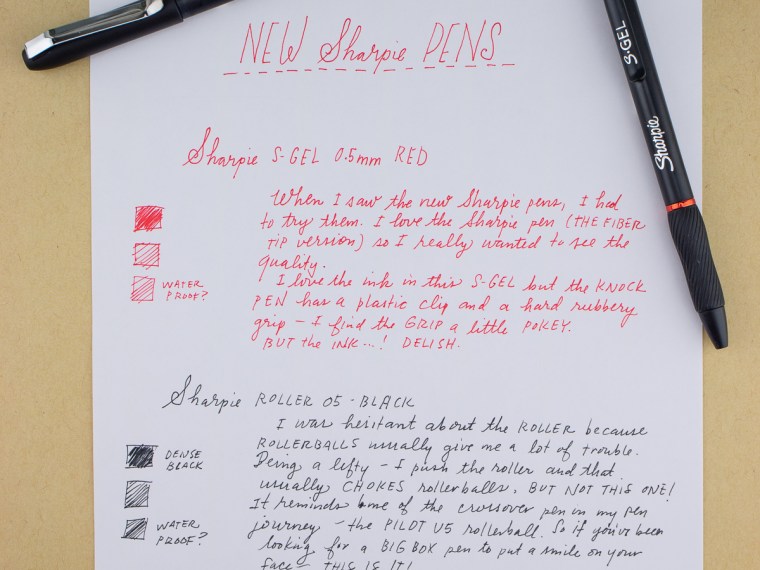 NEW Sharpie PENS
S·GEL
Sharpie
Sharpie S-GEL 0.5mm RED
When I saw the new Sharpie pens, I had
to try them. I love the Sharpie pen (THE FIBER
TIP version) so I really wanted to see the
quality.
I love the ink in this S-GEL but the KNOCK
PEN has a plastic clip and a hard rubbery
grip – I find the GRIP a little POKEY.
BUT the INK...! DELISH.
WATER
PROOF?
Sharpie ROLLER 05 - BLACK
I was hesitant about the ROLLER because
ROLLERBALLS usually give me a lot of trouble.
Being a lefty – I push the roller and that
usually CHOKES rollerballs, BUT NOT THIS ONE!
It reminds me of the crossover pen in my pen
journey – the PILOT V5 rollerball. So if you've been
looking for a BIG BOX pen to put a smile on your
face – THIS IS IT!
DENSE
BLACK
WATER
PROOF?